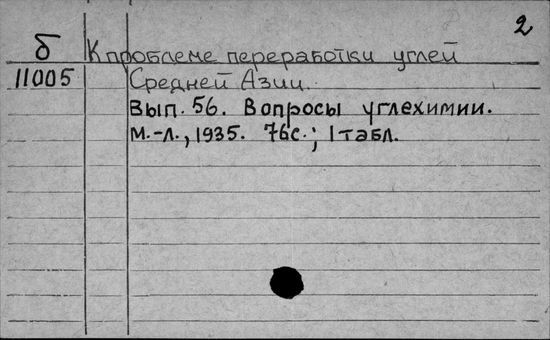 2
б К проблеме переработки углей
11005 Средней Азии.
Вып. 56. Вопросы углехимии.
М.-Л., 1935. 76с.; 1 табл.